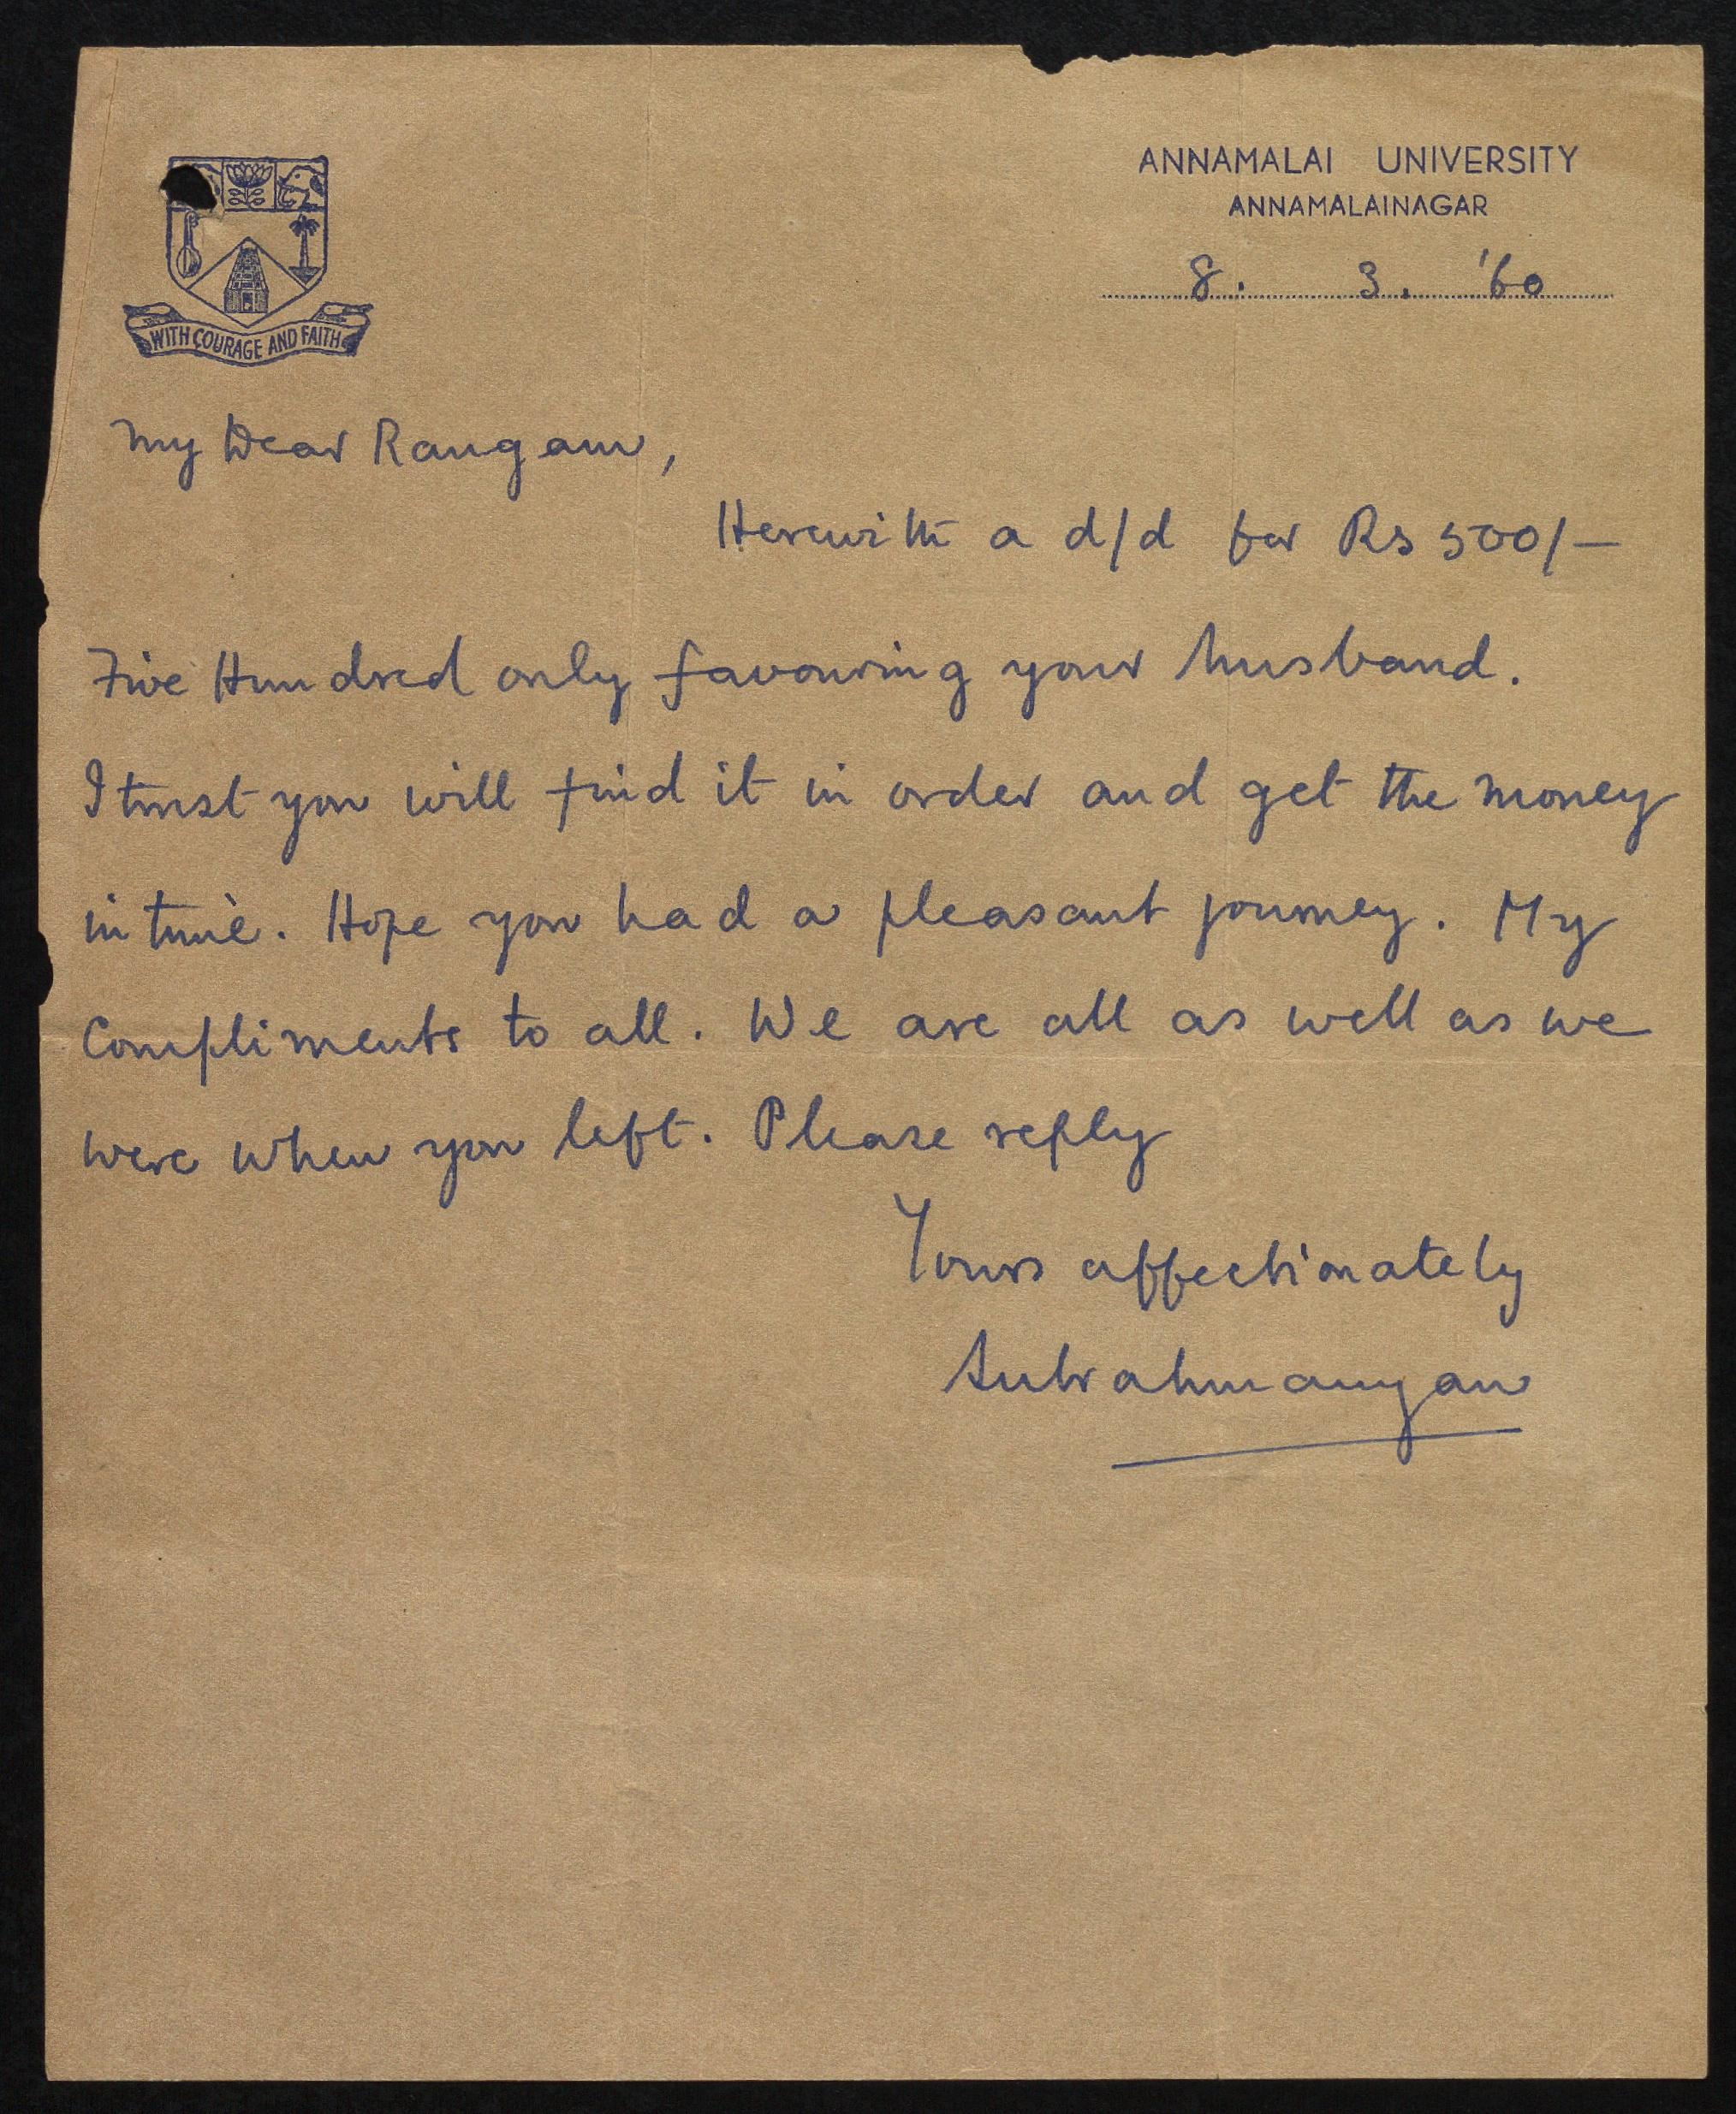 WITH COURAGE AND FAITH
ANNAMALAI UNIVERSITY
ANNAMALAINAGAR
8. 3. '60
My Dear Rangam,
Herewith a d/d for Rs 500/-
Five Hundred only favouring your husband.
I trust you will find it in order and get the money
in time. Hope you had a pleasant journey. My
Compliments to all. We are all as well as we
were when you left. Please reply
Yours affectionately
Subrahmanyan